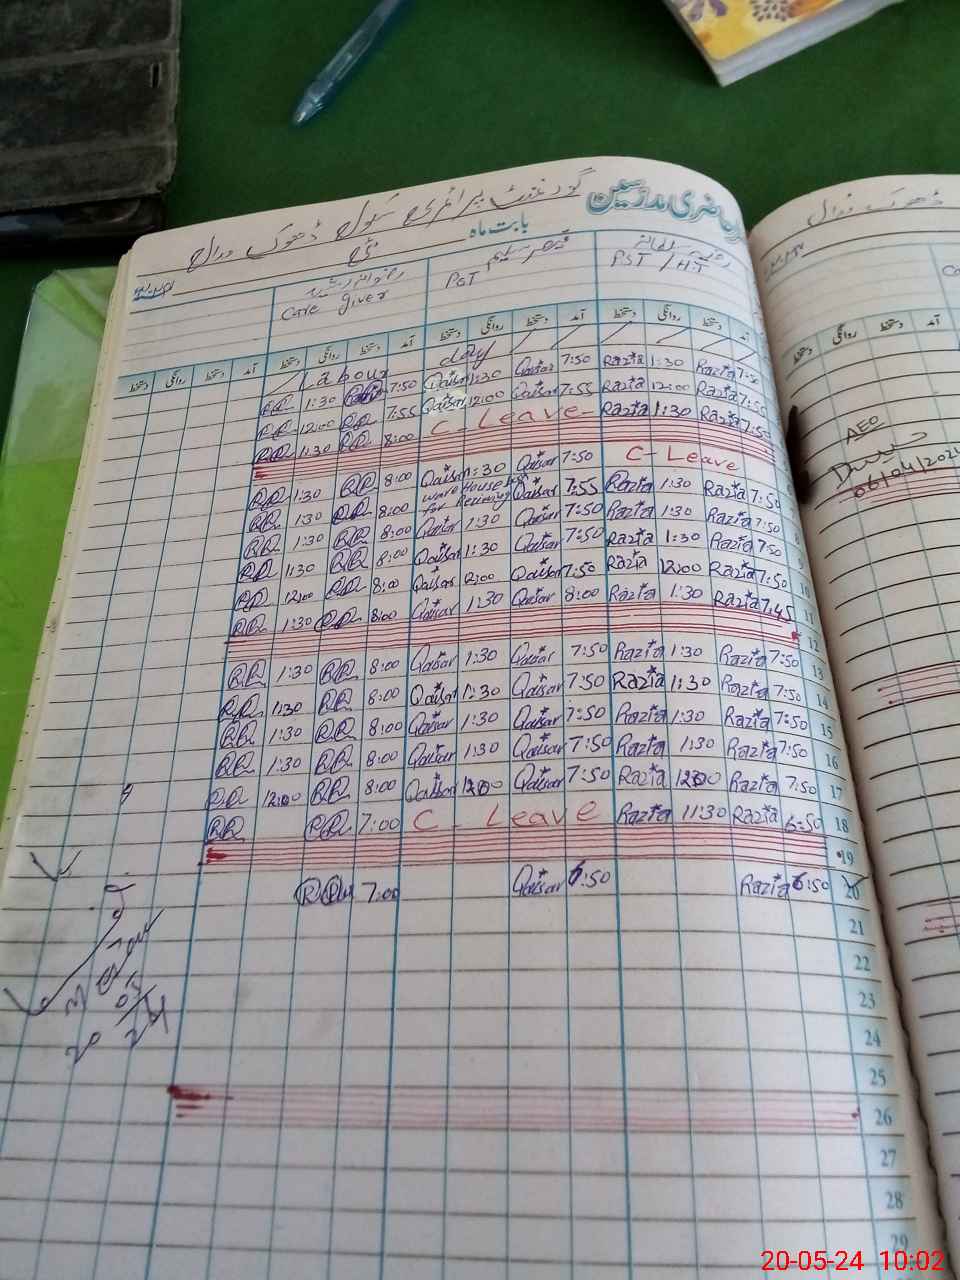 حاضری مدرسین گورنمنٹ پرائمری سکول ڈھوک
بابت ماہ مئی
PST / HT PST Care giver
دستخط روانگی دستخط آمد دستخط روانگی دستخط آمد دستخط روانگی دستخط آمد دستخط روانگی دستخط آمد
Labour day
RR 1:30 RR 7:50 Qaisar 1:30 Qaisar 7:50 Razia 1:30 Razia 7:50
RR 12:00 RR 7:55 Qaisar 12:00 Qaisar 7:55 Razia 12:00 Razia 7:55
RR 1:30 RR 8:00 C- Leave- Razia 1:30 Razia 7:50
RR 1:30 RR 8:00 Qaisar 1:30 Qaisar 7:50 C- Leave
RR 1:30 RR 8:00 ware House for Qaisar 7:55 Razia 1:30 Razia 7:50
RR 1:30 RR 8:00 Qaisar 1:30 Qaisar 7:50 Razia 1:30 Razia 7:50
RR 1:30 RR 8:00 Qaisar 1:30 Qaisar 7:50 Razia 1:30 Razia 7:50 9
RR 12:00 RR 8:00 Qaisar 12:00 Qaisar 7:50 Razia 12:00 Razia 7:50 10
RR 1:30 RR 8:00 Qaisar 1:30 Qaisar 8:00 Razia 1:30 Razia 7:45 11
12
RR 1:30 RR 8:00 Qaisar 1:30 Qaisar 7:50 Razia 1:30 Razia 7:50 13
RR 1:30 RR 8:00 Qaisar 1:30 Qaisar 7:50 Razia 1:30 Razia 7:50 14
RR 1:30 RR 8:00 Qaisar 1:30 Qaisar 7:50 Razia 1:30 Razia 7:50 15
RR 1:30 RR 8:00 Qaisar 1:30 Qaisar 7:50 Razia 1:30 Razia 7:50 16
RR 12:00 RR 8:00 Qaisar 12:00 Qaisar 7:50 Razia 12:00 Razia 7:50 17
RR RR 7:00 C - Leave Razia 11:30 Razia 6:50 18
19
RR 7:00 Qaisar 6:50 Razia 6:50 20
21
22
23
24
25
26
27
28
29
20 05 24
ڈھوک
آمد دستخط روانگی دستخط
AEO
06/04/2024
20-05-24 10:02